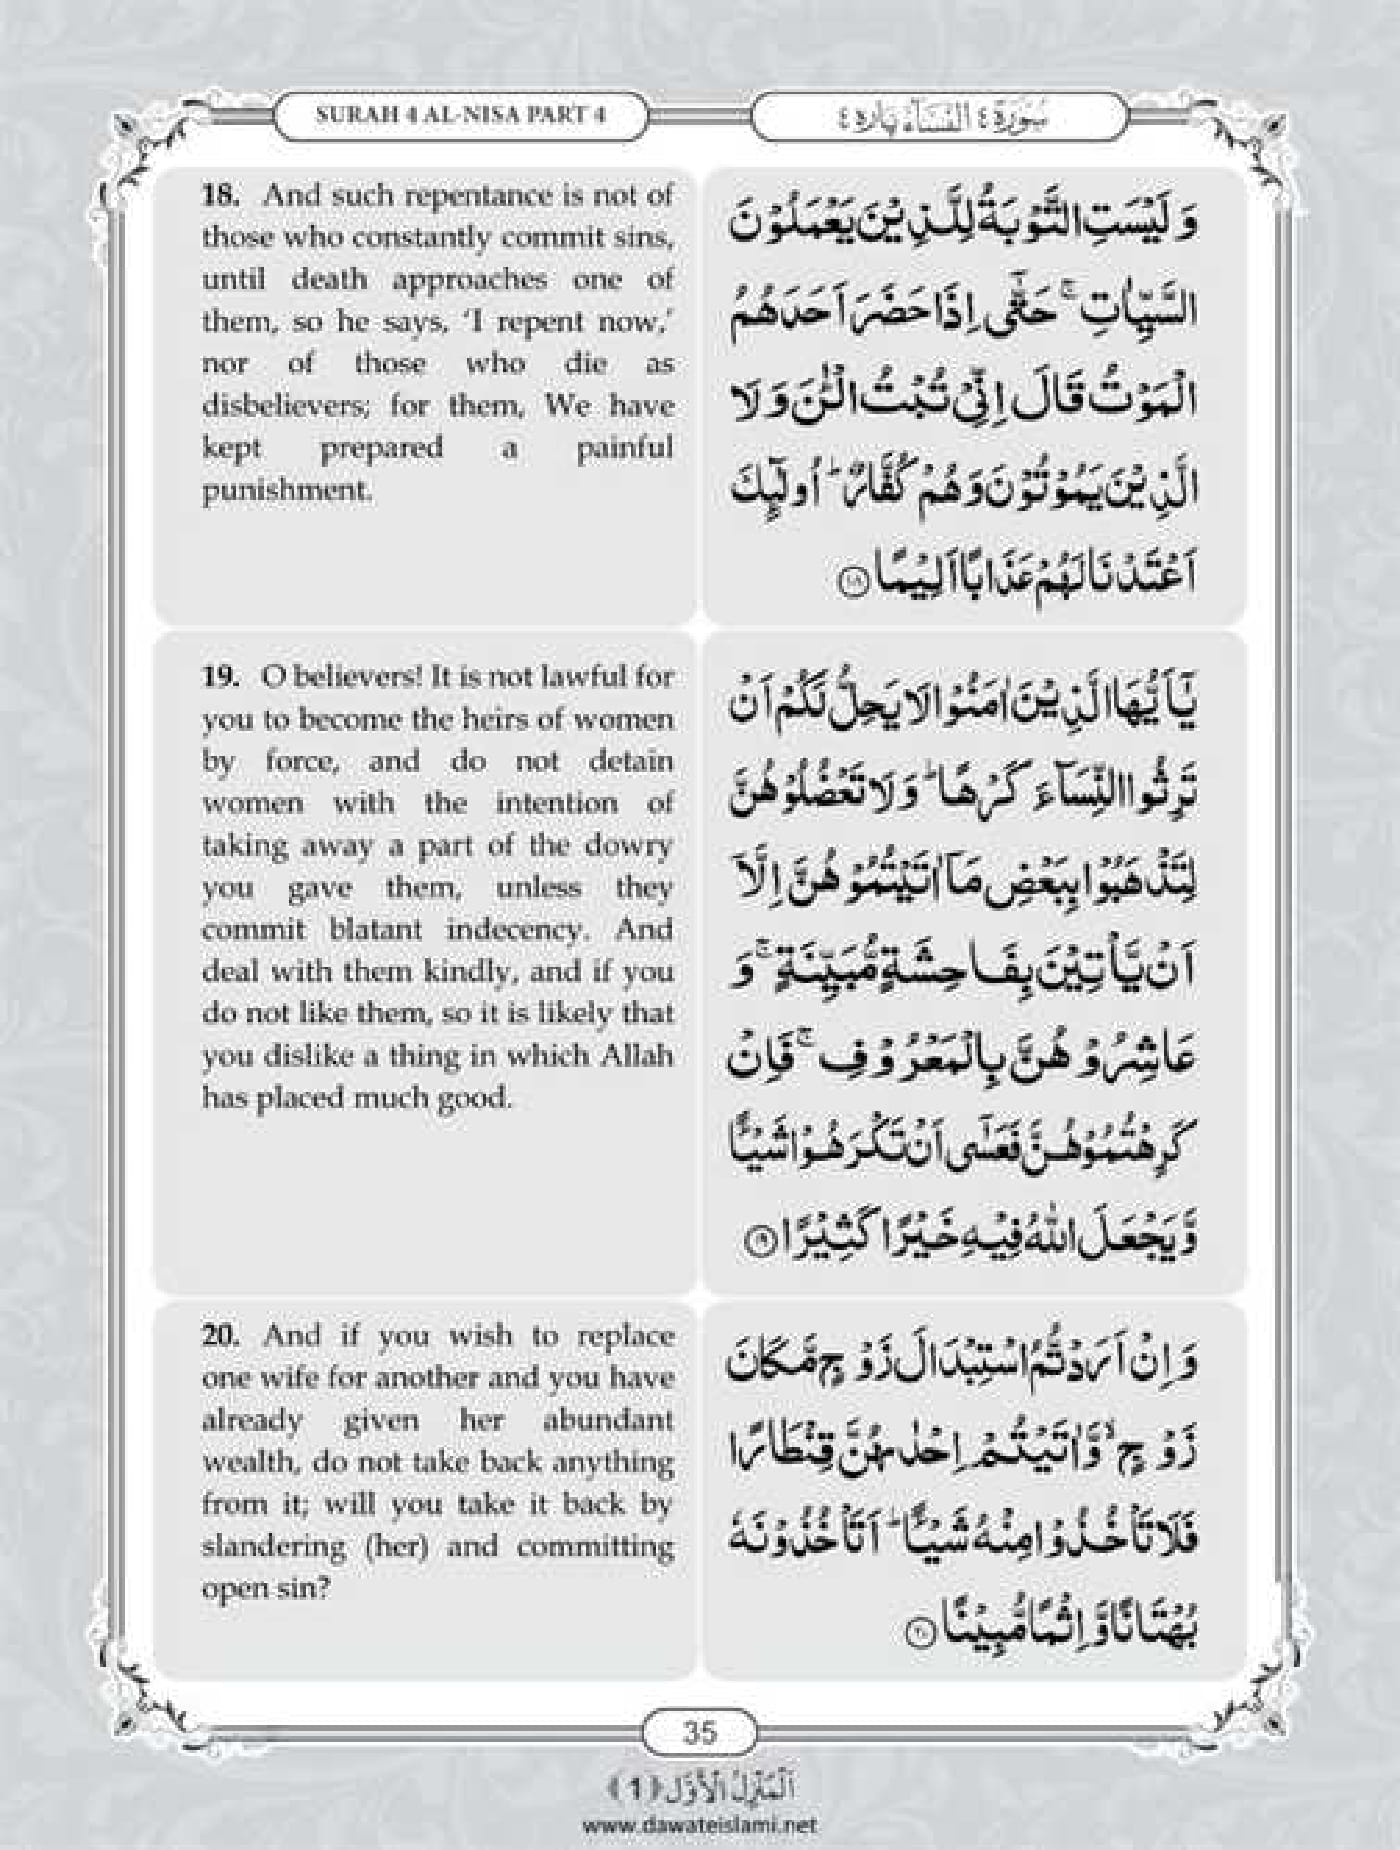 SURAH 4 AL-NISA PART 4
سُوۡرَة ٤ النِّسَآء پاره ٤
18. And such repentance is not of
those who constantly commit sins,
until death approaches one of
them, so he says, ‘I repent now,’
nor of those who die as
disbelievers; for them, We have
kept prepared a painful
punishment.
وَلَیْسَتِ التَّوْبَةُ لِلَّذِیْنَ یَعْمَلُوْنَ
السَّیِّاٰتِ ۚ حَتّٰۤی اِذَا حَضَرَ اَحَدَهُمُ
الْمَوْتُ قَالَ اِنِّیْ تُبْتُ الْـٰٔنَ وَ لَا
الَّذِیْنَ یَمُوْتُوْنَ وَ هُمْ كُفَّارٌ ؕ اُولٰٓىِٕكَ
اَعْتَدْنَا لَهُمْ عَذَابًا اَلِیْمًا ۱۸
19. O believers! It is not lawful for
you to become the heirs of women
by force, and do not detain
women with the intention of
taking away a part of the dowry
you gave them, unless they
commit blatant indecency. And
deal with them kindly, and if you
do not like them, so it is likely that
you dislike a thing in which Allah
has placed much good.
یٰۤاَیُّهَا الَّذِیْنَ اٰمَنُوْا لَا یَحِلُّ لَكُمْ اَنْ
تَرِثُوا النِّسَآءَ كَرْهًا ؕ وَ لَا تَعْضُلُوْهُنَّ
لِتَذْهَبُوْا بِبَعْضِ مَاۤ اٰتَیْتُمُوْهُنَّ اِلَّاۤ
اَنْ یَّاْتِیْنَ بِفَاحِشَةٍ مُّبَیِّنَةٍ ۚ وَ
عَاشِرُوْهُنَّ بِالْمَعْرُوْفِ ۚ فَاِنْ
كَرِهْتُمُوْهُنَّ فَعَسٰۤی اَنْ تَكْرَهُوْا شَیْـًٔا
وَّ یَجْعَلَ اللّٰهُ فِیْهِ خَیْرًا كَثِیْرًا ۱۹
20. And if you wish to replace
one wife for another and you have
already given her abundant
wealth, do not take back anything
from it; will you take it back by
slandering (her) and committing
open sin?
وَ اِنْ اَرَدْتُّمُ اسْتِبْدَالَ زَوْجٍ مَّكَانَ
زَوْجٍ ۙ وَّ اٰتَیْتُمْ اِحْدٰىهُنَّ قِنْطَارًا
فَلَا تَاْخُذُوْا مِنْهُ شَیْـًٔا ؕ اَتَاْخُذُوْنَهٗ
بُهْتَانًا وَّ اِثْمًا مُّبِیْنًا ۲۰
35
اَلْمَنْزِلُ الْاَوَّل ﴿1﴾
www.dawateislami.net